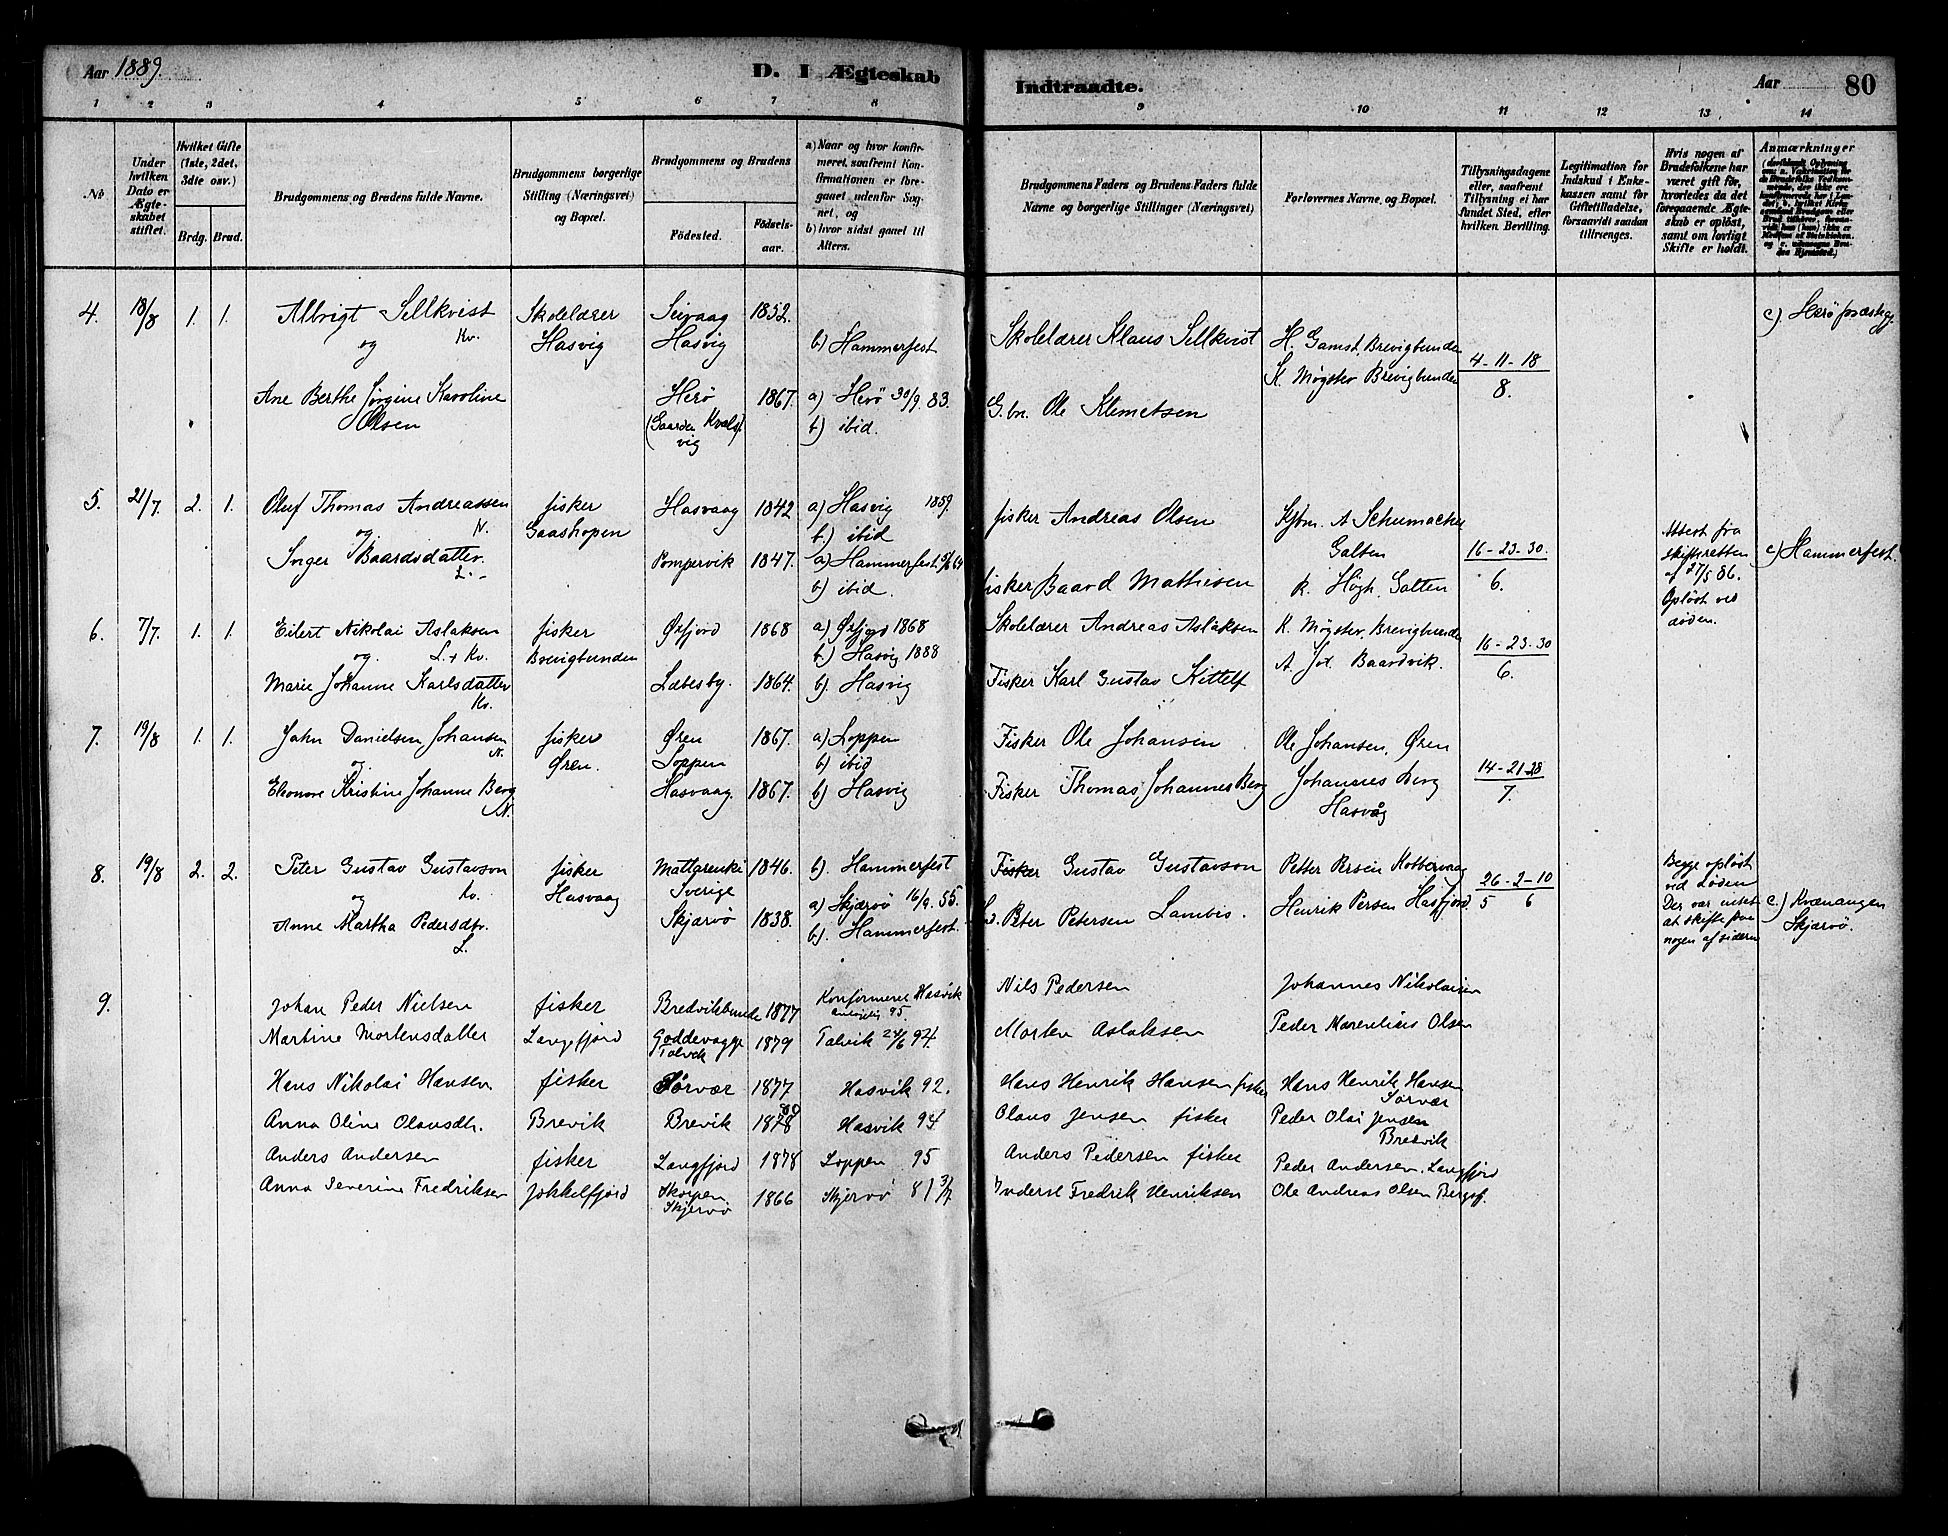 Aar 1889. D. I Ægteskab Indtraadte. Aar 80
1 2 3 4 5 6 7 8 9 10 11 12 13 14
No
Under hvilken Dato er Ægteskabet stiftet.
Hvilket Gifte (1ste, 2det, 3die osv.)
Brdg. Brud.
Brudgommens og Brudens fulde Navne.
Brudgommens borgerlige Stilling (Næringsvei) og Bopæl.
Brudgommens og Brudens
Fødested. Fødselsaar.
a) Naar og hvor konfirmeret, saafremt Konfirmationen er foregaaet udenfor Sognet, og
b) hvor sidst gaaet til Alters.
Brudgommens Faders og Brudens Faders fulde Navne og borgerlige Stillinger (Næringsvei)
Forlovernes Navne, og Bopæl.
Tillysningsdagene eller, saafremt Tillysning ei har fundet Sted, efter hvilken Bevilling.
Legitimation for Indskud i Enkekassen samt for Giftetilladelse, forsaavidt saadan tiltrænges.
Hvis nogen af Brudefolkene har været gift før, hvorledes da det foregaaende Ægteskab er opløst, samt om lovligt Skifte er holdt.
Anmærkninger
4. 18/8 1. 1. Albrigt Sellkvist Skolelærer Seivaag 1852. Skolelærer Klaus Sellkvist H. Gamst, Brevigbunden 4-11-18 c). Herø præstegj.
Kv.
og Hasvig Hasvig b) Hammerfest K. Møgster Brevigbunden 8.
Ane Berthe Jørgine Karoline Herø 1867. a) Herø 30/9 83. G.br. Ole Klemetsen
Olsen (Gaarden Kvalsvig b) ibid.
5. 21/7 2. 1. Oluf Thomas Andreassen fisker Hasvaag 1842 a) Hasvig 1859. fisker Andreas Olsen Kjbm. A Schumacher
og N. Gaashopen b.) ibid Galten 16-23-30. Attest fra
Inger Baardsdatter Pompervik 1847. a) Hammerfest 5/6 64 fisker Baard Mathisen R. Høgh, Galten 6. skifteretten c) Hammerfest.
L. b) ibid. af 27/5 86.
Opløst ved
døden.
6. 7/7. 1. 1. Eilert Nikolai Aslaksen fisker Øxfjord 1868 a) Øxfjord 1868 Skolelærer Andreas Aslaksen K. Møgster, Brevigbunden 16-23-30
og L. + Kv. Brevigbunden b.) Hasvig 1888 A. Baardvik. 6.
Marie Johanne Karlsdatter Lebesby. 1864. b). Hasvig Fisker Karl Gustav Kittelf
Kv.
7. 19/8 1. 1. John Danielsen Johansen fisker Øren 1867. a) Loppen Fisker Ole Johansen Ole Johansen, Øren
og N. Øren. Loppen b) ibid 14-21-28
Elenore Kristine Johanne Berg Hasvaag. 1867. b) Hasvig Fisker Thomas Johannes Berg Johannes Berg 7.
N. Hasvåg
8. 19/8 2. 2. Peter Gustav Gustavson fisker Mattarenki 1846. b). Hammerfest Fisker Gustav Gustavson Petter Persen Kobbervaag Begge opløst
og Kv. Hasvaag Sverige a) Skjærvø 16/9. 55. 26-2-10 ved Døden
Anne Martha Pedersdtr. Skjærvø 1838. b). Hammerfest. Peter Petersen Lambis. Henrik Persen Hasfjord 5 6 Der var intet c.) Kvænangen
L. at skifte paa Skjærvø.
nogen af siderne
9. Johan Peder Nielsen fisker Bredvikbunde 1877 Konfirmeret Hasvik 95. Nils Pedersen Johannes Nikolaisen
Martine Mortensdatter Langefjord Goddevagge Talvik 1879 Talvik 24/6 94. Morten Aslaksen Peder Marenlius Olsen
Hans Nikolai Hansen fisker Sørvær 1877 Hasvik 92. Hans Henrik Hansen fisker Hans Henrik Hansen Sørvær
Anna Oline Olausdtr. Brevik Brevik 1878 80 Hasvik 94 Olaus Jensen fisker Peder Olai Jensen Bredvik
Anders Andersen fisker Langfjord 1878 Loppen 95 Anders Pedersen fisker Peder Andersen. Langfjord
Anna Severine Fredriksen Jøkkelfjord Skorpen. Skjervø 1866 Skjervø 81 3/7 Inderst Fredrik Henriksen Ole Andreas Olsen Bergsf.